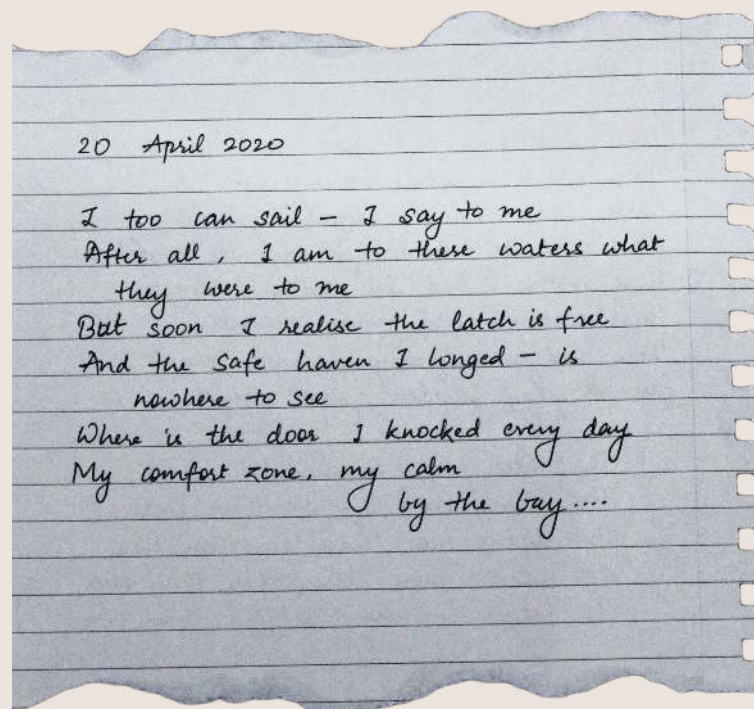 20 April 2020
I too can sail – I say to me
After all, I am to these waters what
they were to me
But soon I realise the latch is free
And the safe haven I longed – is
nowhere to see
Where is the door I knocked every day
My comfort zone, my calm
by the bay....